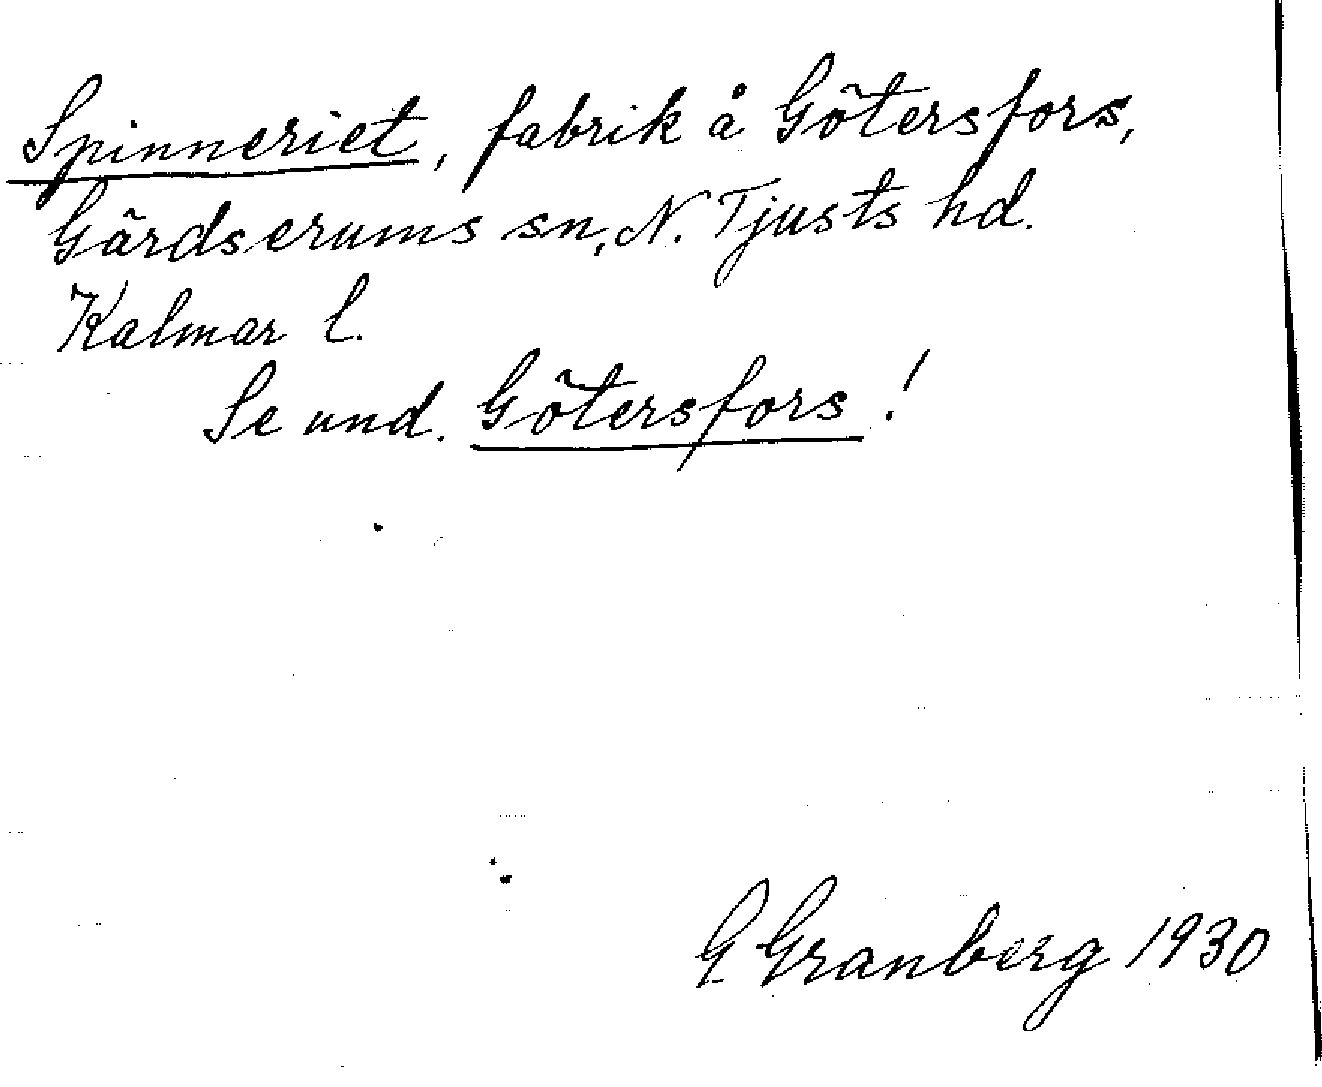 Spinneriet, fabrik å Götersfors,
Gärdserums sn, N. Tjusts hd.
Kalmar l.
Se und. Götersfors!
G Granberg 1930